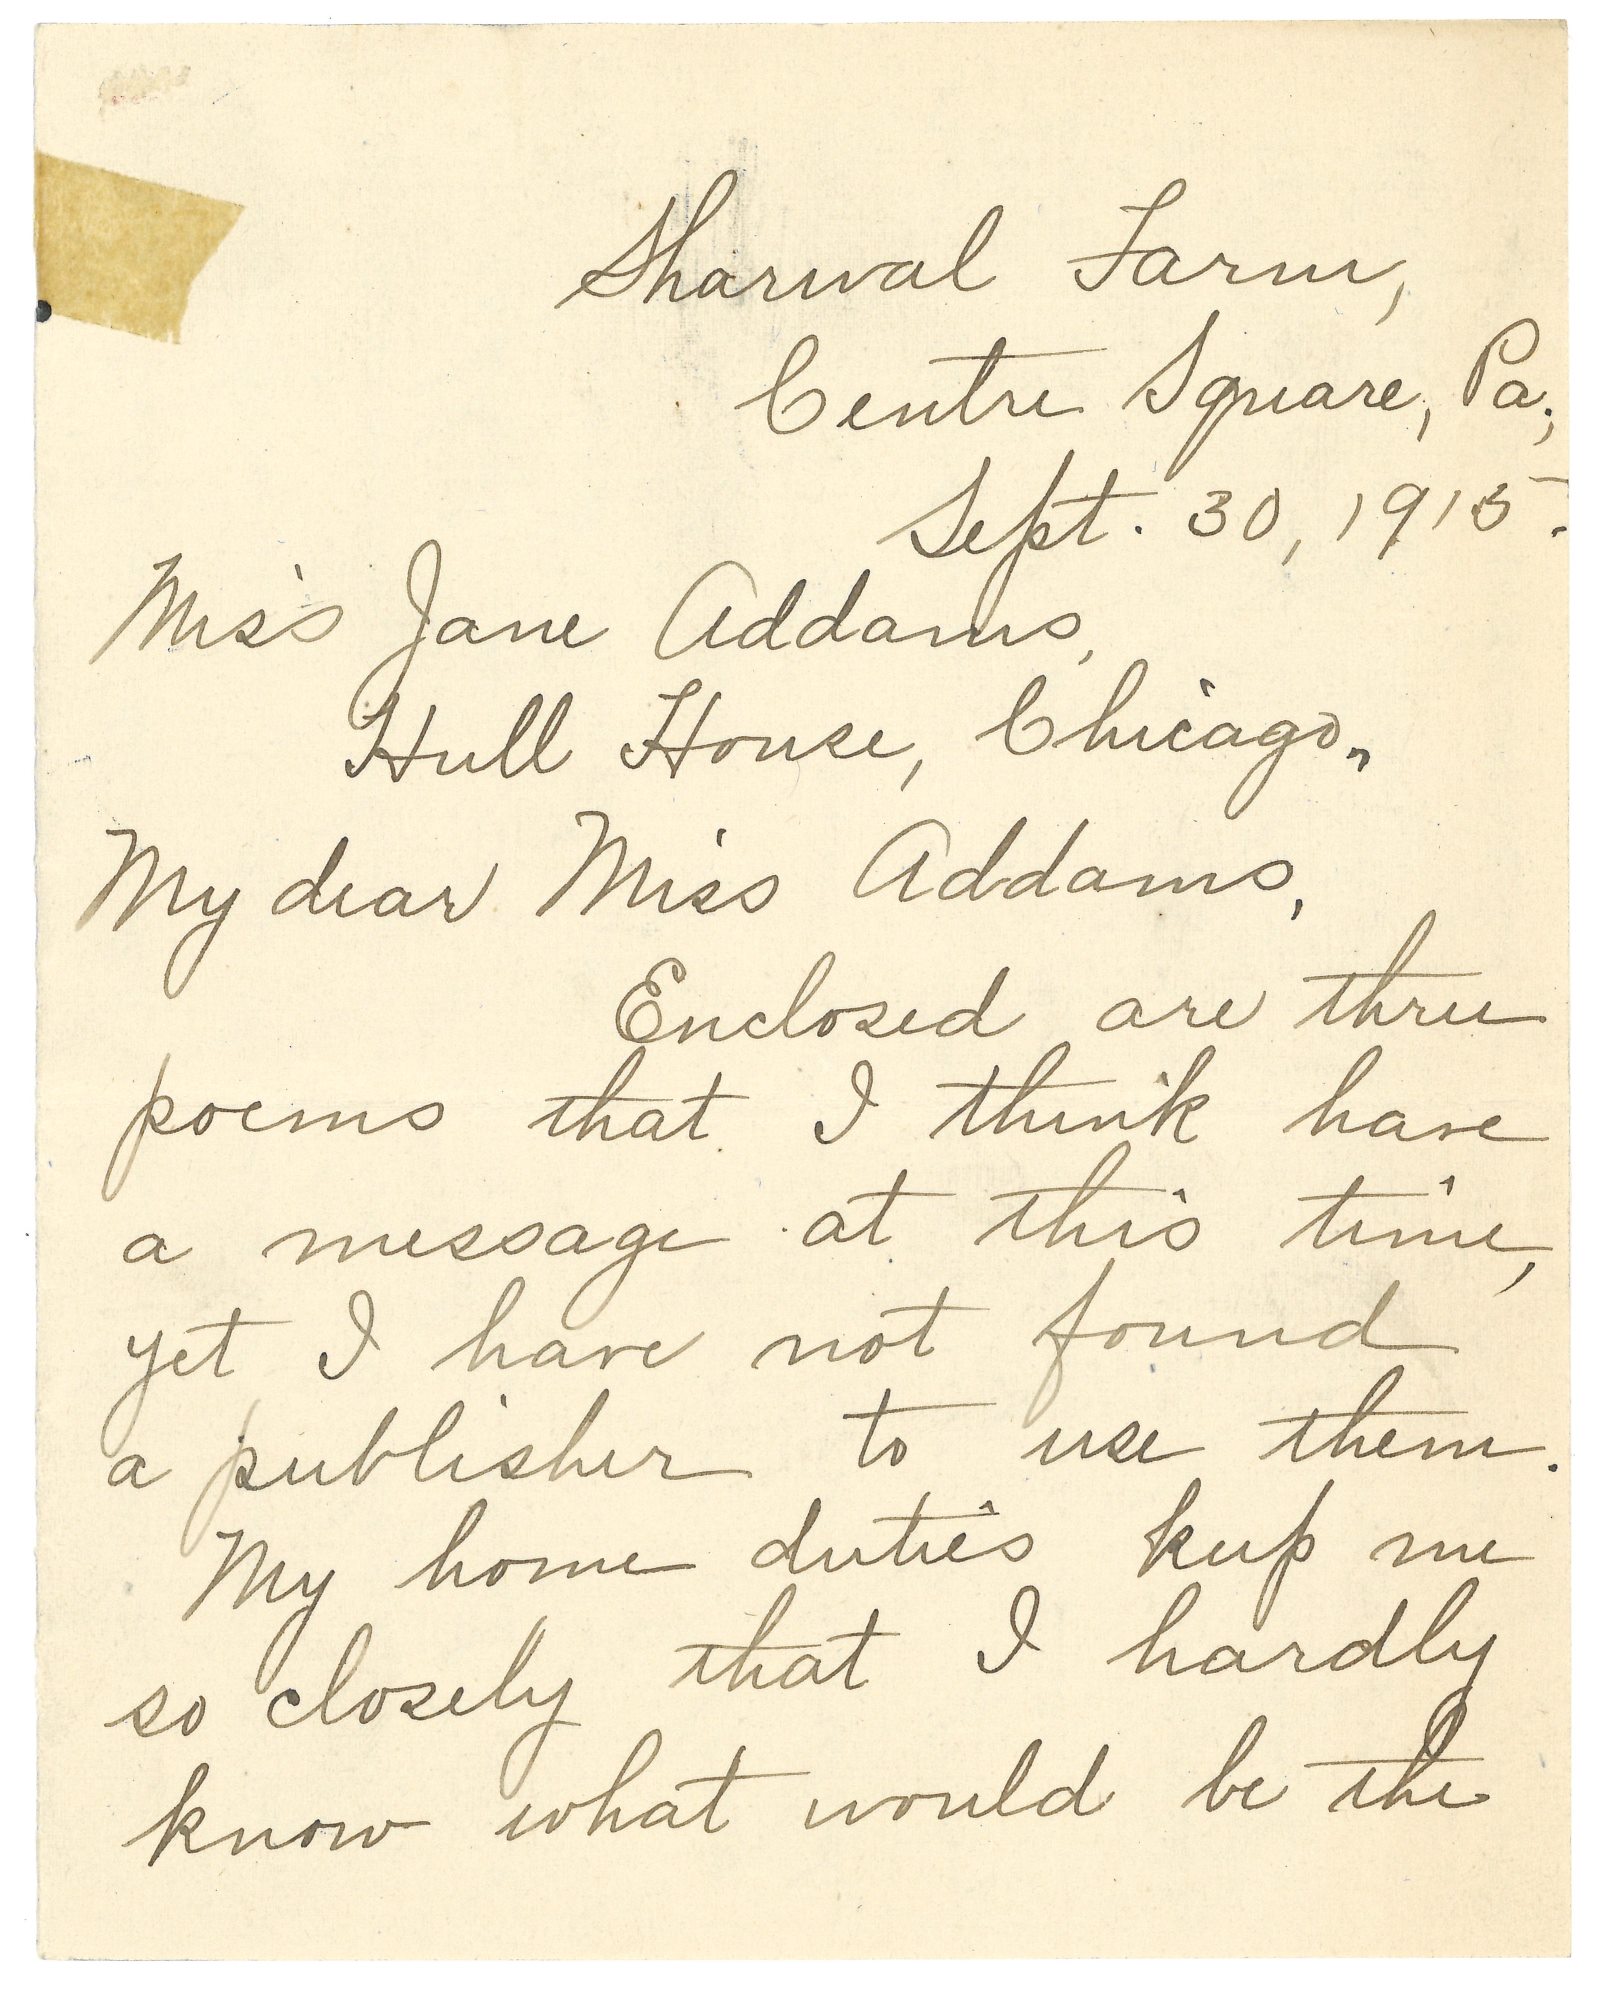 Sharwal Farm,
Centre Square, Pa.,
Sept. 30, 1915.
Miss Jane Addams,
Hull House, Chicago.,
My dear Miss Addams,
Enclosed are three
poems that I think have
a message at this time,
yet I have not found
a publisher to use them.
My home duties keep me
so closely that I hardly
know what would be the